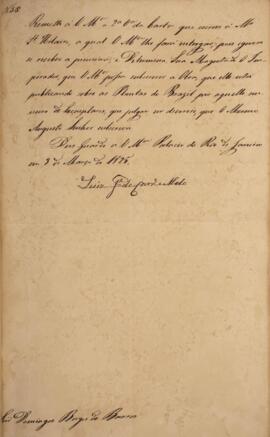 Remetto á V. M.ce a 2.ª Via da carta que escrevi á Mr.
St. Hilaire, a qual V. M.ce lhe fará entregar, para que
se recebeo a primeira; e Determina Sua Magestade O Im-
perador que V. M.ce possa subscrever a Obra, que elle está
publicando sobre as Plantas do Brazil por aquelle nu-
mero de Exemplares, que julgar ser decoroso, que O Mesmo
Augusto Senhor subscreva.
Deos Guarde a V. M.ce Palacio do Rio de Janeiro
em 3 de Março de 1825.
Luiz J.e de Carv.o e Mello
Snr. Domingos Borges de Barros